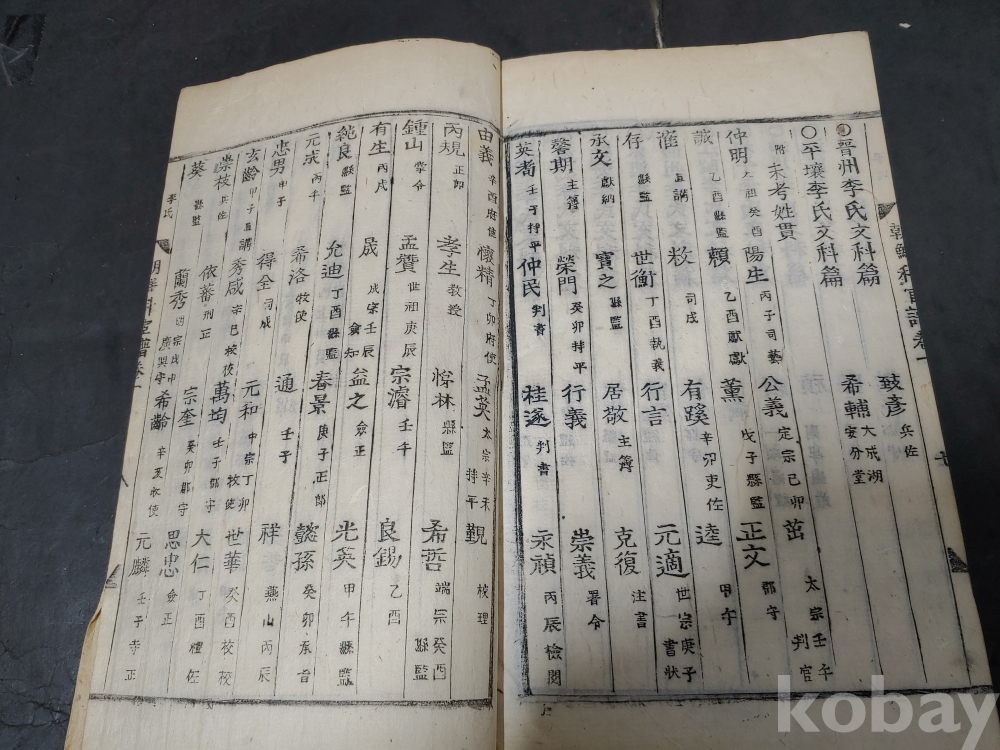 朝鮮科宦譜卷一 七
晉州李氏文科篇 致彦 兵佐
〇平壤李氏文科篇 希輔 大成湖 安分堂
附 未考姓貫
仲明 太祖癸酉 陽生 丙子司藝 公義 定宗己卯 茁 太宗壬午 判官
誠 乙酉縣監 賴 乙酉獻獻 薰 戊子縣監 正文 郡守
直講 敉 司成 有蹊 辛卯吏佐 逵 甲午
存 縣監 世衡 丁酉執義 行言 元適 世宗庚子 書狀
承文 獻納 實之 縣監 居敬 主簿 克復 注書
馨期 主簿 榮門 癸卯持平 行義 崇義 署令
英耉 壬子持平 仲民 判書 桂遂 判書 永禎 丙辰檢閱
由義 辛酉府使 懷精 丁卯府使 孟英 太宗辛未 持平 覲 校理
丙規 正郎 孝生 敎授 惇林 縣監 希哲 端宗癸酉 縣監
鍾山 掌令 孟贊 世祖庚辰 宗濬 壬午 良錫 乙酉
有生 丙戌 晟 成宗壬辰 僉知 益之 僉正 光英 甲午縣監
純良 縣監 允迪 丁酉縣監 春景 庚子正郎 懿孫 癸卯承旨
元成 丙午 希洛 牧使 通 壬子 祥 燕山丙辰
忠男 甲子 得全 司成 元和 中宗丁卯 牧使 世華 癸酉校校
玄齡 甲子直講 秀咸 辛巳校校 萬均 壬子郡守 大仁 丁酉禮佐
崇枝 兵佐 依蕃 刑正 宗奎 癸卯郡守 思忠 僉正
葵 縣監 蘭秀 明宗戊申 廣興守 希齡 辛亥牧使 元麟 壬子寺正
李氏
朝鮮科宦譜卷一
kobay